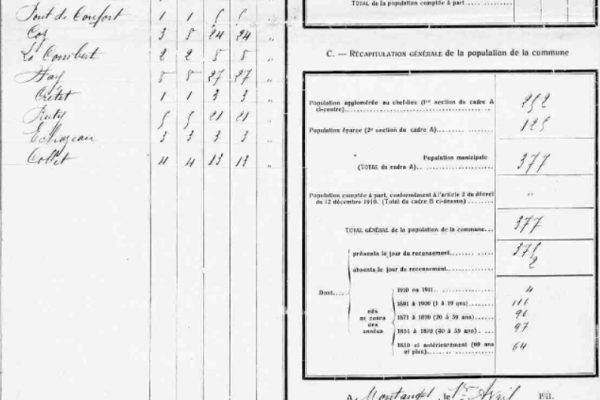 Pont de Confort 1 1 5 5
Coz 3 8 24 24 "
Le Combert 2 2 8 8 "
Hay 8 8 27 27 "
Crétet 1 1 3 3 "
5 5 21 21 "
3 3 3 3 "
Collet 4 4 13 13 "
TOTAL de la population comptée à part
C. — RÉCAPITULATION GÉNÉRALE de la population de la commune
Population agglomérée au chef-lieu (1re section du cadre A ci-contre) 252
Population éparse (2e section du cadre A) 125
Population municipale (TOTAL du cadre A) 377
Population comptée à part, conformément à l'article 2 du décret du 12 décembre 1910. (Total du cadre B ci-dessus) "
TOTAL GÉNÉRAL de la population de la commune 377
Dont
présents le jour du recensement 375
absents le jour du recensement 2
nés au cours des années
1910 ou 1911 4
1891 à 1909 (1 à 19 ans) 116
1871 à 1890 (20 à 39 ans) 96
1851 à 1870 (40 à 59 ans) 97
1850 et antérieurement (60 ans et plus) 64
A le 1er Avril 1911.